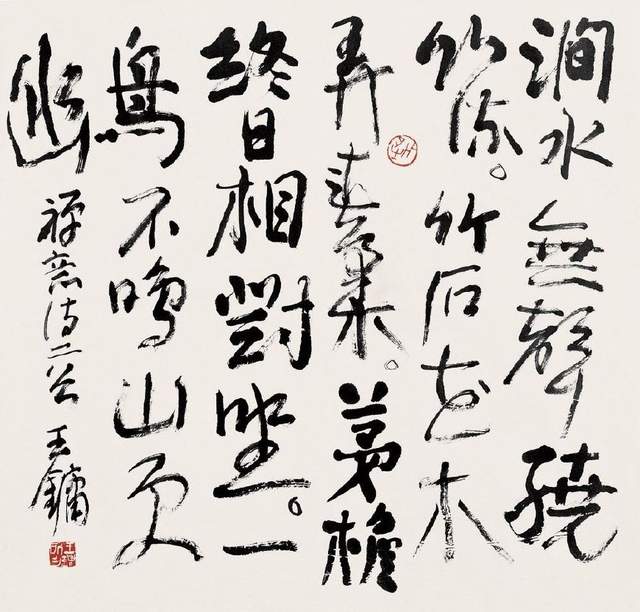 澗水無聲繞
竹流。竹石花木
弄春柔。茅檐
終日相對坐。一
鳥不鳴山更
幽 禪意詩二首 王鏞